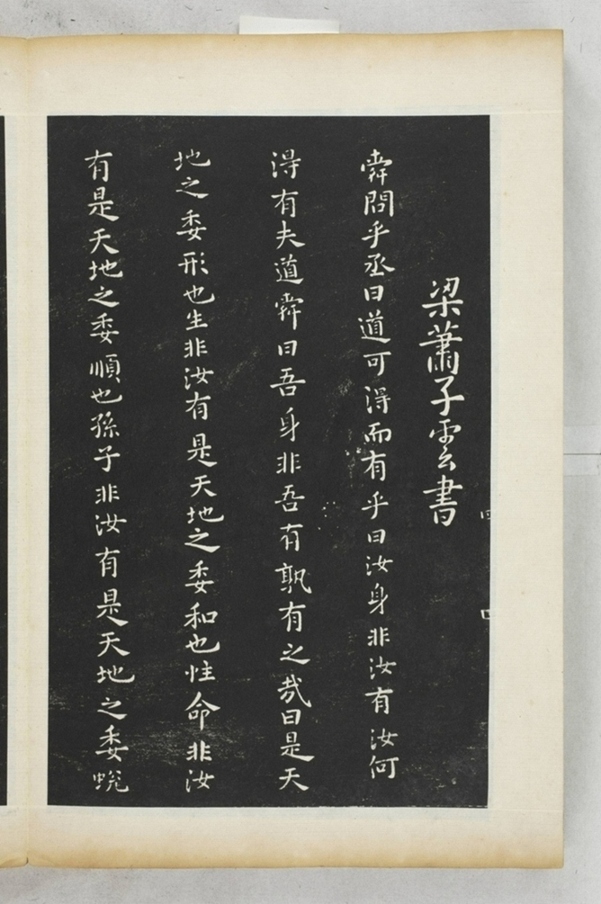 梁蕭子雲書
舜問乎丞曰道可得而有乎曰汝身非汝有汝何
得有夫道舜曰吾身非吾有孰有之哉曰是天
地之委形也生非汝有是天地之委和也性命非汝
有是天地之委順也孫子非汝有是天地之委蛻
四
四